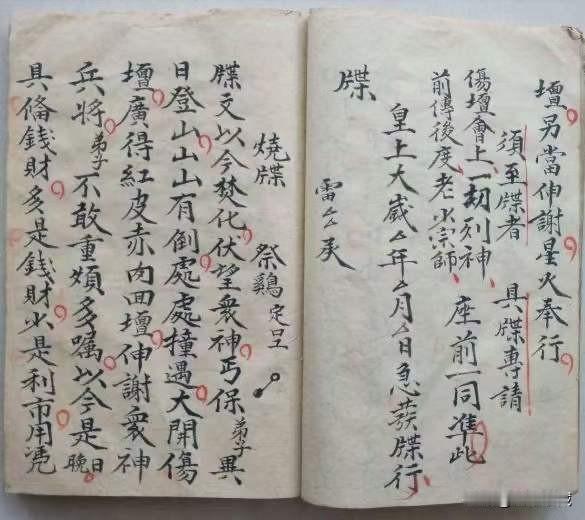 壇另當伸謝星火奉行
須至牒者 具牒專請
傷壇會上一切列神
前傳後度老少宗師 座前一同準此
皇上大歲厶年厶月厶日急發牒行
牒
雷厶天
燒牒 祭鷄定呈
牒文以今焚化伏望衆神丐保弟子異
日登山山山有倒處處撞遇大開傷
壇廣得紅皮赤肉回壇伸謝衆神
兵將弟子不敢重煩多囑以今是日晚
具備錢財多是錢財少是利市用凴